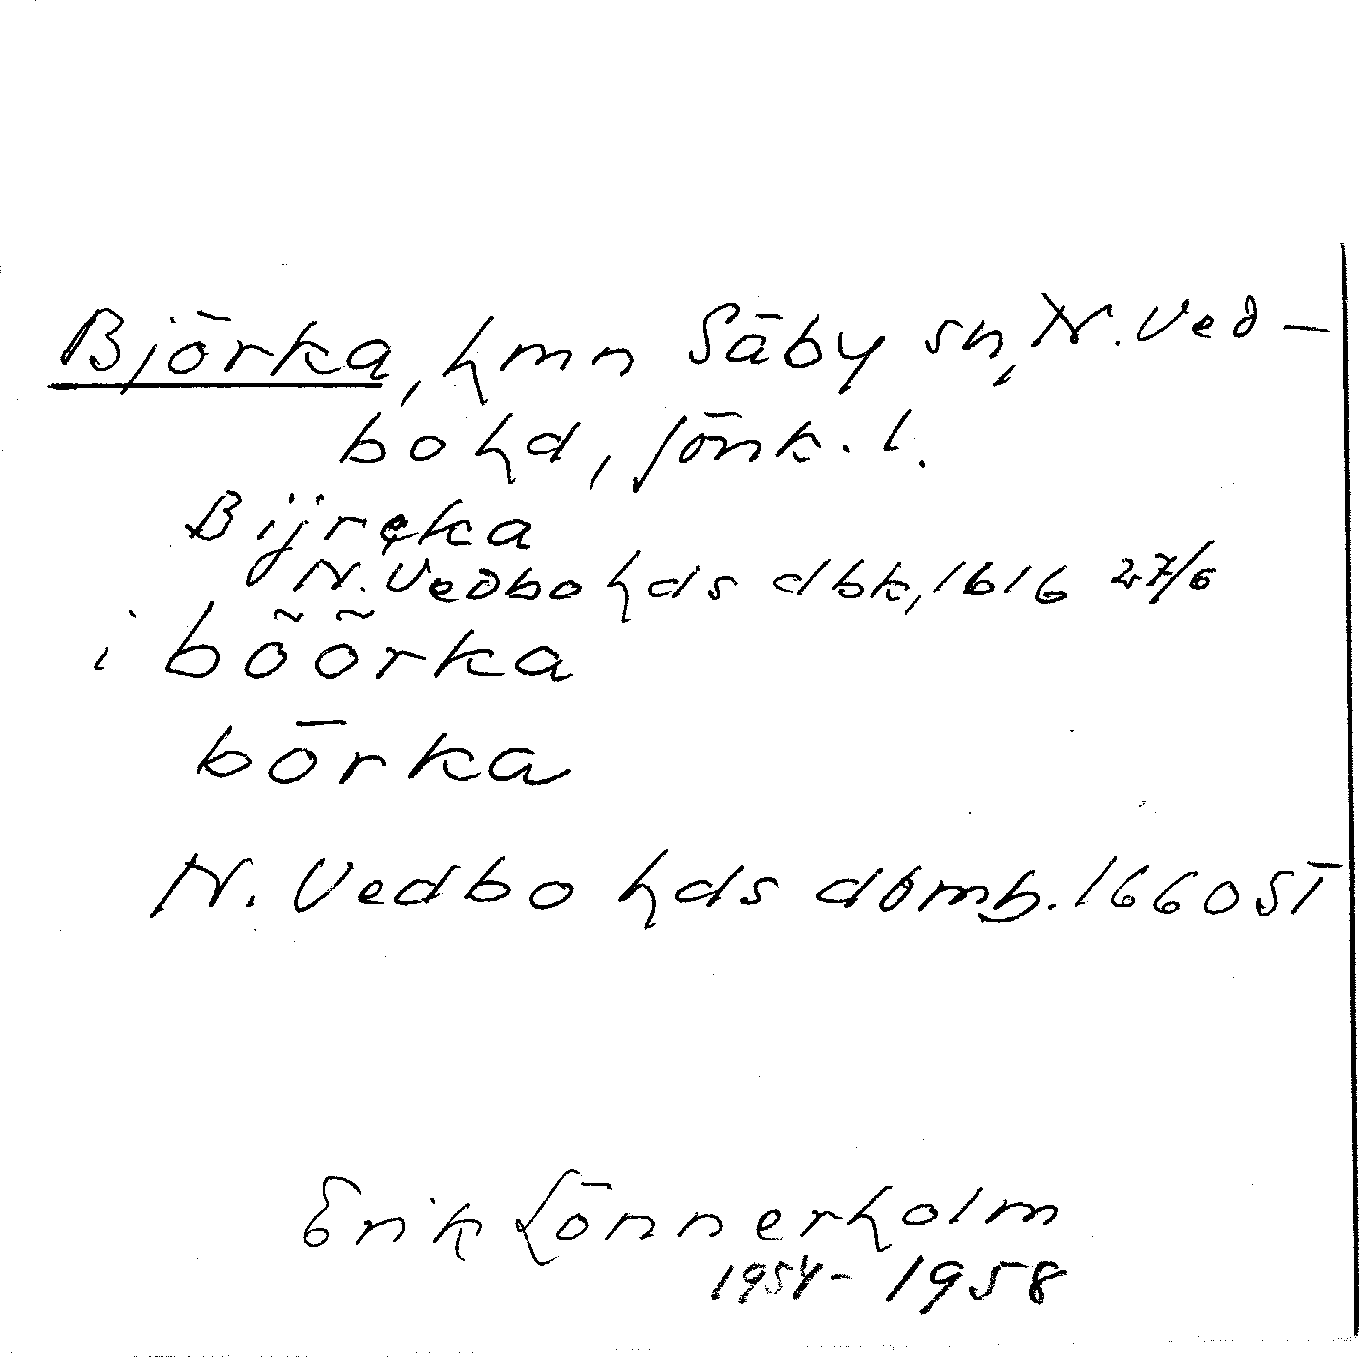 Björka, hmn Säby sn, N. Ved-
bo hd, Jönk. l.
Bijreka
N. Vedbo hds dbk, 1616 27/6
i böörka
börka
N. Vedbo hds domb. 1660 ST
Erik Lönnerholm
1954-1958